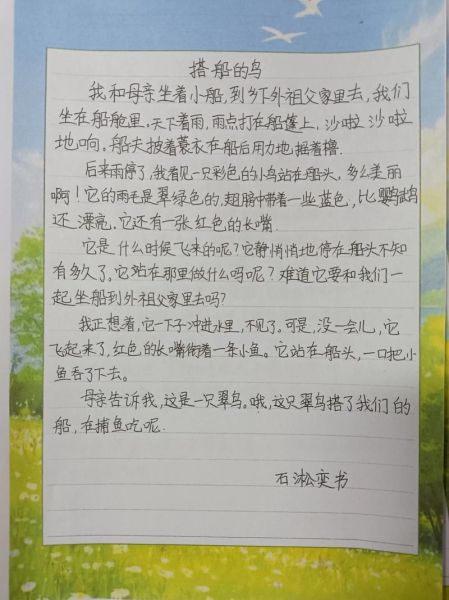 搭船的鸟
我和母亲坐着小船,到乡下外祖父家里去,我们
坐在船舱里.天下着雨,雨点打在船篷上,沙啦沙啦
地响.船夫披着蓑衣在船后用力地摇着橹.
后来雨停了,我看见一只彩色的小鸟站在船头,多么美丽
啊!它的羽毛是翠绿色的,翅膀带着一些蓝色,比鹦鹉
还漂亮.它还有一张红色的长嘴.
它是什么时候飞来的呢?它静悄悄地停在船头不知
有多久了。它站在那里做什么吗呢?难道它要和我们一
起坐船到外祖父家里去吗?
我正想着,它一下子冲进水里,不见了。可是,没一会儿,它
飞起来了,红色的长嘴衔着一条小鱼。它站在船头,一口把小
鱼吞了下去。
母亲告诉我,这是一只翠鸟。哦,这只翠鸟搭了我们的
船,在捕鱼吃呢.
石淞奕书